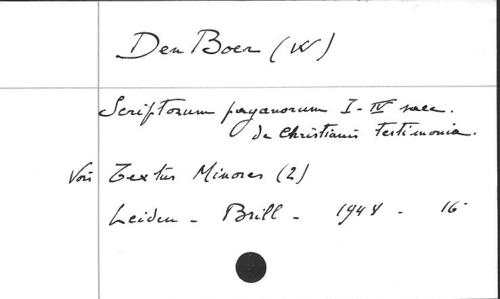 Den Boer (W)
Scriptorum paganorum I-IV saec.
de Christianis Testimonia.
Voir Textus Minores (2)
Leiden - Brill - 1948 - 16°